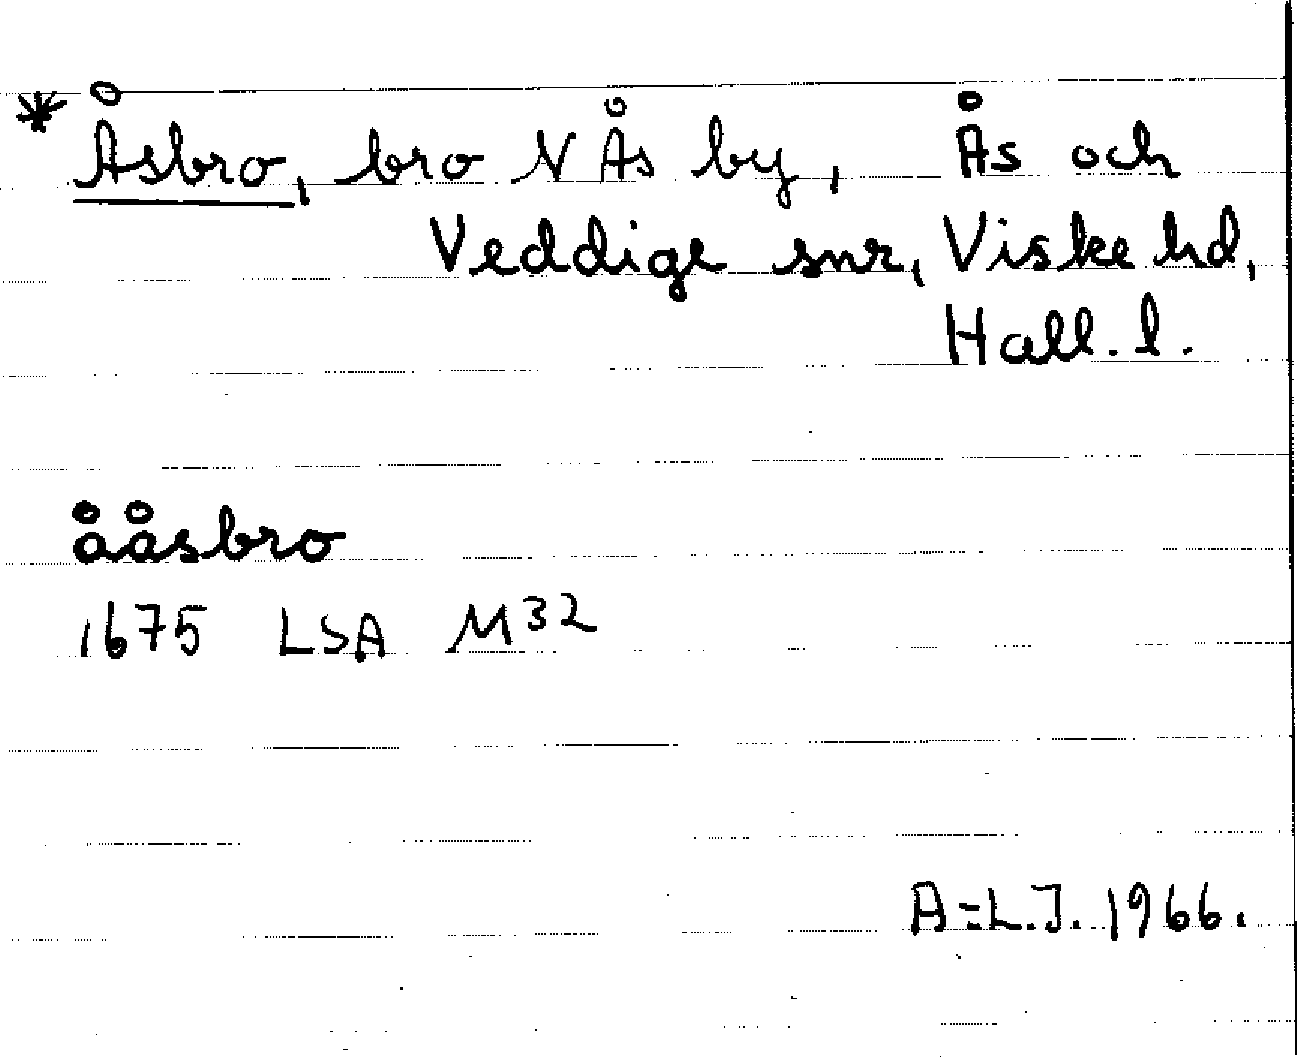 * Åsbro, bro N Ås by, Ås och
Veddige snr, Viske hd,
Hall. l.
ååsbro
1675 LSA M32
A-L.J. 1966.